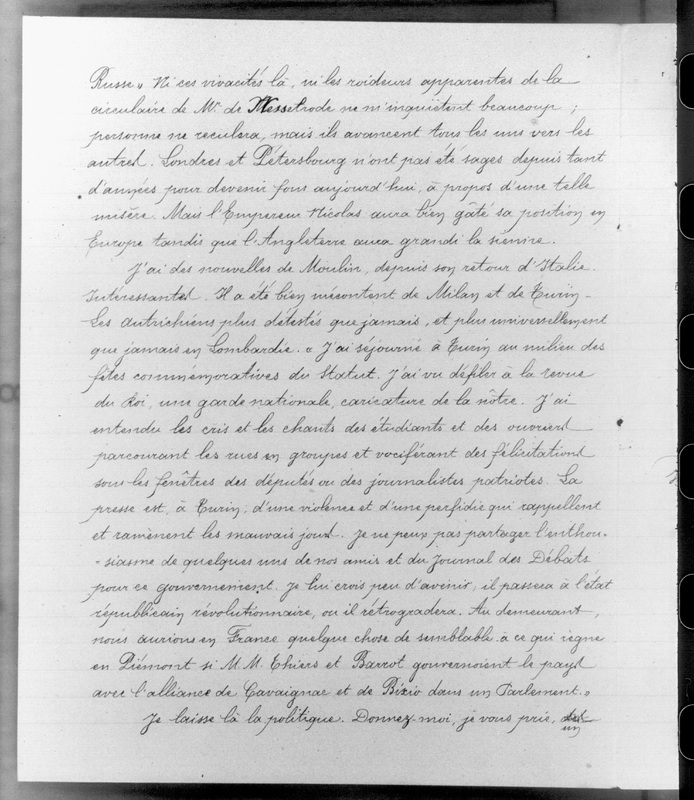 Russe » Ni ces vivacités là, ni les roideurs apparentes de la
circulaire de Mr. de Nesselrode ne m'inquiètent beaucoup ;
personne ne reculera, mais ils avancent tous les uns vers les
autres. Londres et Pétersbourg n'ont pas été sages depuis tant
d'années pour devenir fous aujourd'hui, à propos d'une telle
misère. Mais l'Empereur Nicolas, aura bien gâté sa position en
Europe tandis que l'Angleterre aura grandi la sienne.
J'ai des nouvelles de Moulin, depuis son retour d'Italie.
Intéressantes. Il a été bien mécontent de Milan et de Turin -
Les Autrichiens plus détestés que jamais, et plus universellement
que jamais en Lombardie. « J'ai séjourné à Turin au milieu des
fêtes commémoratives du Statut. J'ai vu défiler à la revue
du Roi, une garde nationale, caricature de la nôtre. J'ai
entendu les cris et les chants des étudiants et des ouvriers
parcourant les rues en groupes et vociférant des félicitations
sous les fenêtres des députés ou des journalistes patriotes. La
presse est, à Turin, d'une violence et d'une perfidie qui rappellent
et ramènent les mauvais jours. Je ne peux pas partager l'enthou-
-siasme de quelques uns de nos amis et du Journal des Débats
pour ce gouvernement. Je lui crois peu d'avenir, il passera à l'état
républicain révolutionnaire, ou il rétrogradera. Au demeurant,
nous aurions en France quelque chose de semblable à ce qui règne
en Piémont si M.M. Thiers et Barrot gouvernoient le pays
avec l'alliance de Cavaignac et de Bixio dans un Parlement. »
Je laisse là la politique. Donnez-moi, je vous prie,
un